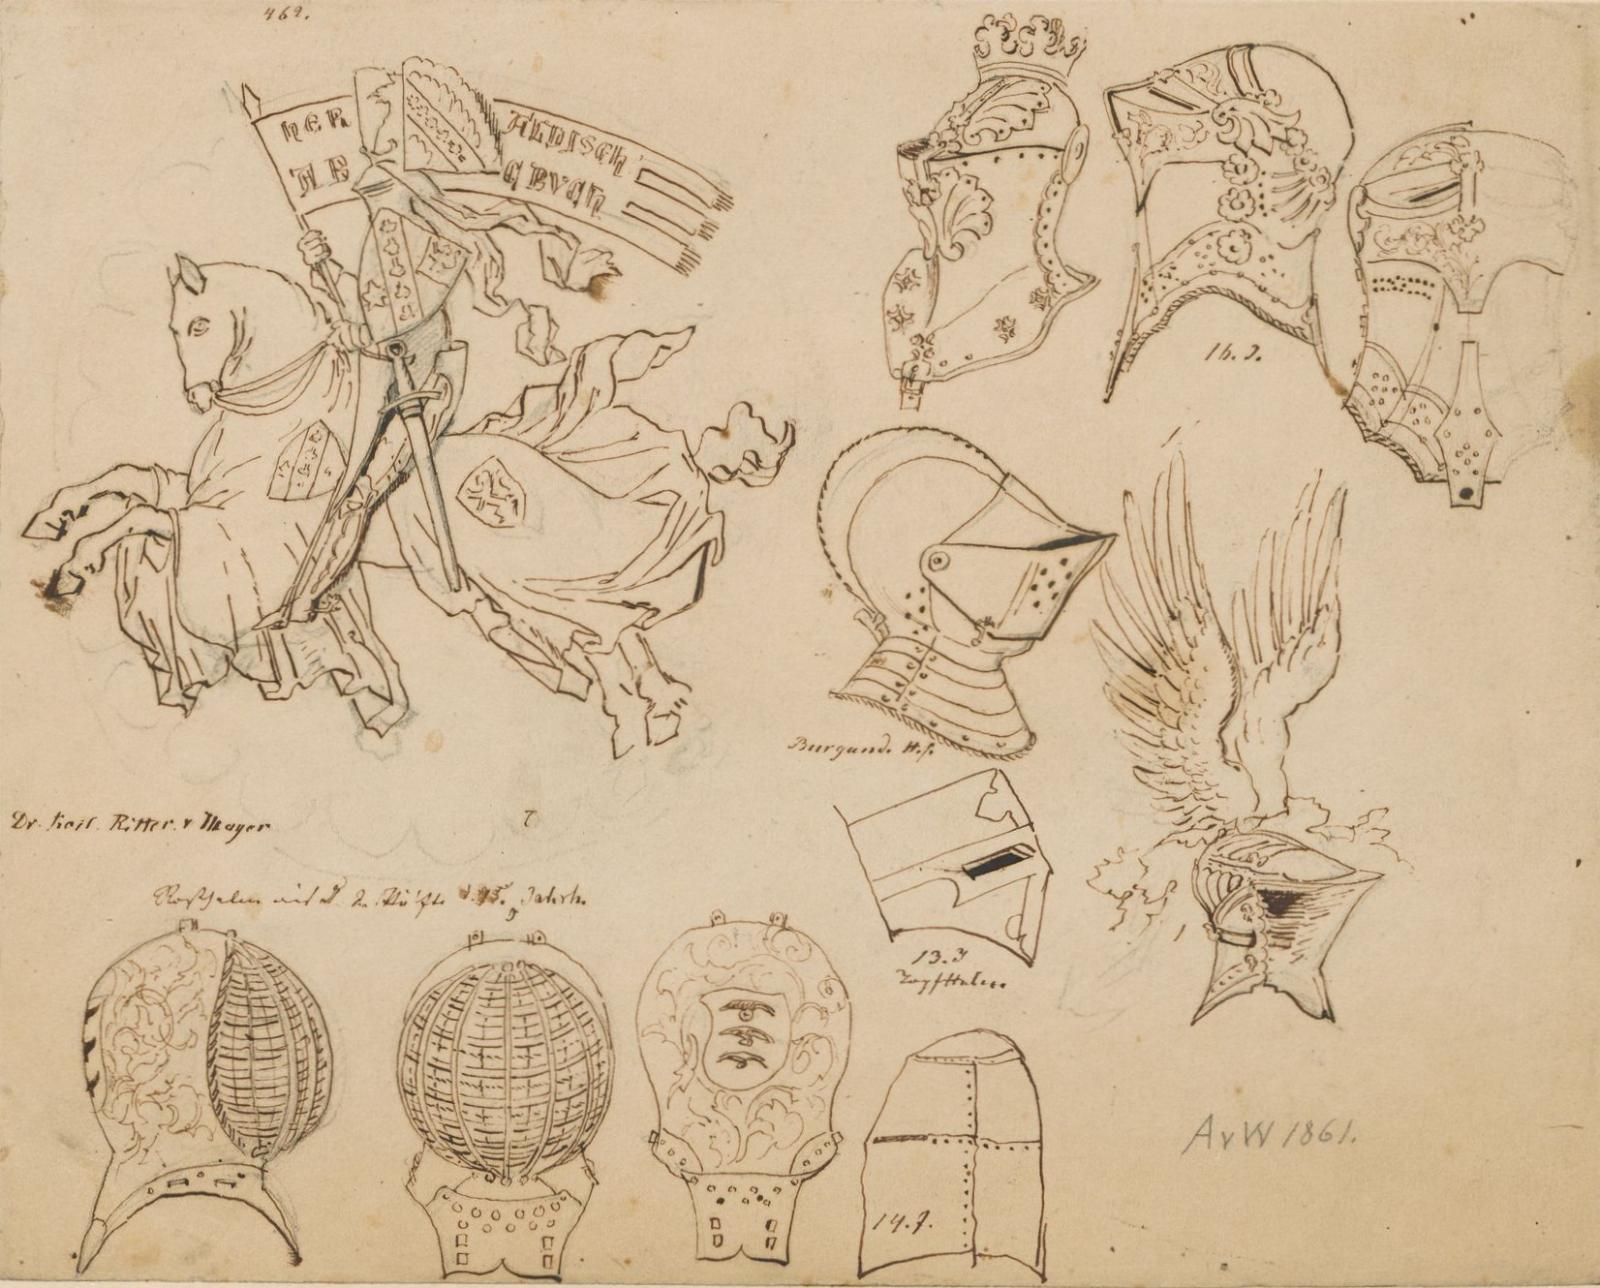 469.
HER ALDISCH
AB GBVCH
16. J.
Burgund. H.f.
Dr. Karl. Ritter. v Mayer
7
aus d. 2. Hälfte d. 15. Jahrh.
13. J
Topfhelm.
14. J.
AvW 1861.